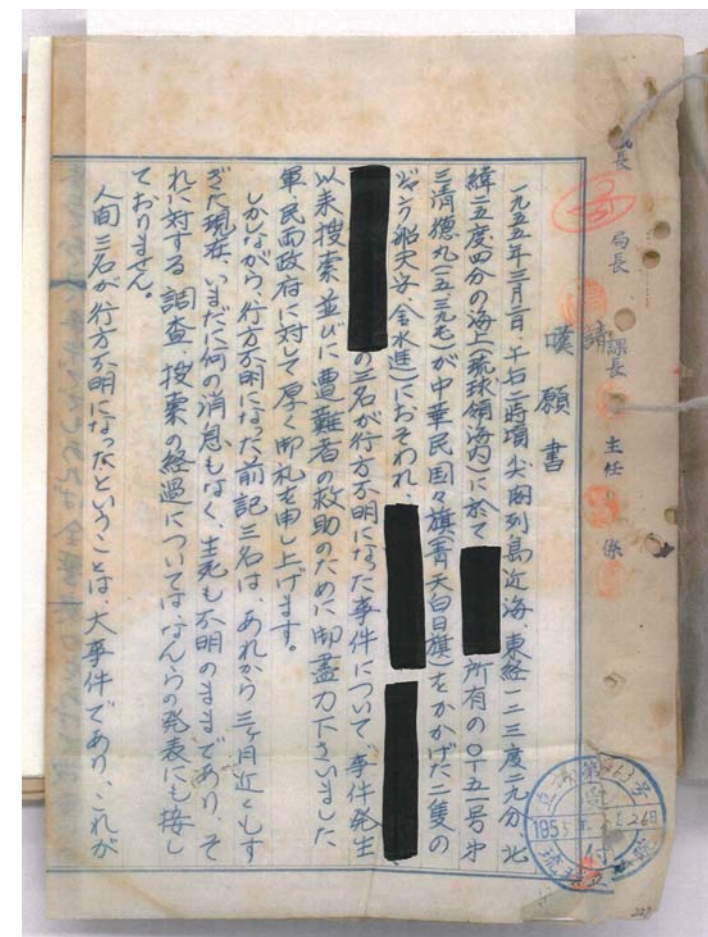 局長
課長
主任
係
請
嘆願書
一九五五年三月二日、午后二時頃尖閣列島近海、東経一二三度二九分、北
緯二五度四分の海上(琉球領海内)に於て 所有の〇十五一号オ
三清徳丸(一五.三九屯)が中華民国々旗(青天白日旗)をかかげた二隻の
ジャンク船夫安、金水進)におそわれ、
の三名が行方不明になった事件について、事件発生
以来捜索並びに遭難者の救助のために御盡力下さいました
軍、民両政府に対して厚く御礼を申し上げます。
しかしながら、行方不明になった前記三名は、あれから三ヶ月近くもす
ぎた現在、いまだに何の消息もなく、生死も不明のままであり、そ
れに対する調査、捜索の経過についてはなんらの発表にも接し
ておりません。
人間三名が行方不明になったということは、大事件であり、これが
第 号
受付
195
琉球